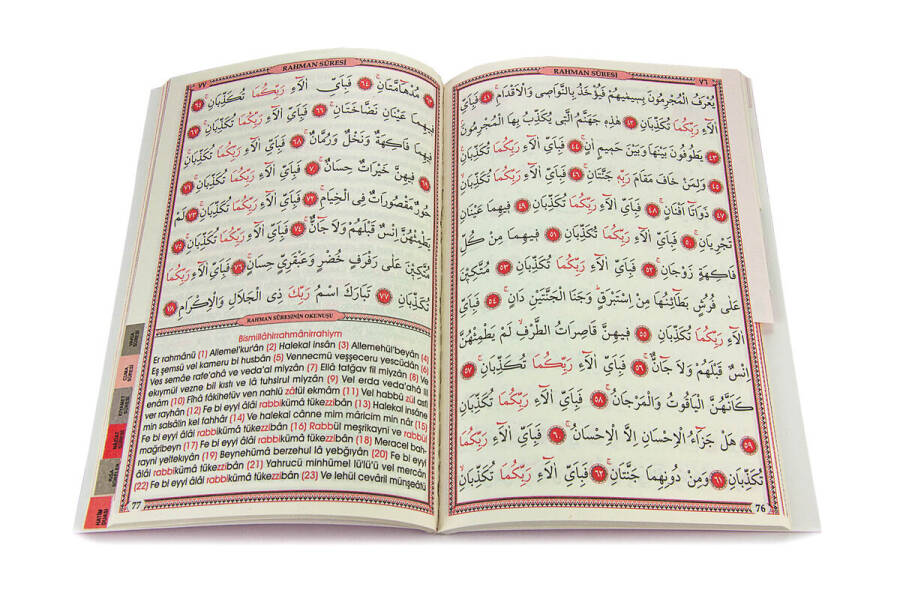 RAHMAN SÛRESİ ٧٦
يُعْرَفُ الْمُجْرِمُونَ بِسِيمٰيهُمْ فَيُؤْخَذُ بِالنَّوَاصِى وَالْاَقْدَامِۚ ٤١ فَبِاَىِّ
اٰلَٓاءِ رَبِّكُمَا تُكَذِّبَانِ ٤٢ هٰذِهِ جَهَنَّمُ الَّتِى يُكَذِّبُ بِهَا الْمُجْرِمُونَۢ
٤٣ يَطُوفُونَ بَيْنَهَا وَبَيْنَ حَمِيمٍ اٰنٍۚ ٤٤ فَبِاَىِّ اٰلَٓاءِ رَبِّكُمَا تُكَذِّبَانِ۟
٤٥ وَلِمَنْ خَافَ مَقَامَ رَبِّهِ جَنَّتَانِۚ ٤٦ فَبِاَىِّ اٰلَٓاءِ رَبِّكُمَا تُكَذِّبَانِۙ
٤٧ ذَوَاتَٓا اَفْنَانٍۚ ٤٨ فَبِاَىِّ اٰلَٓاءِ رَبِّكُمَا تُكَذِّبَانِ ٤٩ فِيهِمَا عَيْنَانِ
تَجْرِيَانِۚ ٥٠ فَبِاَىِّ اٰلَٓاءِ رَبِّكُمَا تُكَذِّبَانِ ٥١ فِيهِمَا مِنْ كُلِّ
فَاكِهَةٍ زَوْجَانِۚ ٥٢ فَبِاَىِّ اٰلَٓاءِ رَبِّكُمَا تُكَذِّبَانِ ٥٣ مُتَّكِـِٔينَ
عَلٰى فُرُشٍ بَطَٓائِنُهَا مِنْ اِسْتَبْرَقٍۜ وَجَنَا الْجَنَّتَيْنِ دَانٍۚ ٥٤ فَبِاَىِّ
اٰلَٓاءِ رَبِّكُمَا تُكَذِّبَانِ ٥٥ فِيهِنَّ قَاصِرَاتُ الطَّرْفِۙ لَمْ يَطْمِثْهُنَّ
اِنْسٌ قَبْلَهُمْ وَلَا جَٓانٌّۚ ٥٦ فَبِاَىِّ اٰلَٓاءِ رَبِّكُمَا تُكَذِّبَانِۚ ٥٧
كَاَنَّهُنَّ الْيَاقُوتُ وَالْمَرْجَانُۚ ٥٨ فَبِاَىِّ اٰلَٓاءِ رَبِّكُمَا تُكَذِّبَانِ
٥٩ هَلْ جَزَٓاءُ الْاِحْسَانِ اِلَّا الْاِحْسَانُۚ ٦٠ فَبِاَىِّ اٰلَٓاءِ رَبِّكُمَا
تُكَذِّبَانِ ٦١ وَمِنْ دُونِهِمَا جَنَّتَانِۚ ٦٢ فَبِاَىِّ اٰلَٓاءِ رَبِّكُمَا تُكَذِّبَانِۙ
76
٧٧ RAHMAN SÛRESİ
٦٣ مُدْهَٓامَّتَانِۚ ٦٤ فَبِاَىِّ اٰلَٓاءِ رَبِّكُمَا تُكَذِّبَانِۚ ٦٥
فِيهِمَا عَيْنَانِ نَضَّاخَتَانِۚ ٦٦ فَبِاَىِّ اٰلَٓاءِ رَبِّكُمَا تُكَذِّبَانِ ٦٧
فِيهِمَا فَاكِهَةٌ وَنَخْلٌ وَرُمَّانٌۚ ٦٨ فَبِاَىِّ اٰلَٓاءِ رَبِّكُمَا تُكَذِّبَانِۚ
٦٩ فِيهِنَّ خَيْرَاتٌ حِسَانٌۚ ٧٠ فَبِاَىِّ اٰلَٓاءِ رَبِّكُمَا تُكَذِّبَانِۚ ٧١
حُورٌ مَقْصُورَاتٌ فِى الْخِيَامِۚ ٧٢ فَبِاَىِّ اٰلَٓاءِ رَبِّكُمَا تُكَذِّبَانِۚ ٧٣ لَمْ
يَطْمِثْهُنَّ اِنْسٌ قَبْلَهُمْ وَلَا جَٓانٌّۚ ٧٤ فَبِاَىِّ اٰلَٓاءِ رَبِّكُمَا تُكَذِّبَانِۚ ٧٥
مُتَّكِـِٔينَ عَلٰى رَفْرَفٍ خُضْرٍ وَعَبْقَرِىٍّ حِسَانٍۚ ٧٦ فَبِاَىِّ اٰلَٓاءِ رَبِّكُمَا
تُكَذِّبَانِ ٧٧ تَبَارَكَ اسْمُ رَبِّكَ ذِى الْجَلَالِ وَالْاِكْرَامِ ٧٨
RAHMAN SÛRESİNİN OKENUŞU
Bismillâhirrahmânirrahiym
Er rahmânü (1) Allemel'kur'ân (2) Halekal insân (3) Allemehül'beyân (4)
Eş şemsü vel kameru bi husbân (5) Vennecmü veşşeceru yescüdân (6)
Ves semâe rafe'ahâ ve veda'al miyzân (7) Ellâ tatğav fil miyzân (8) Ve
ekıymül vezne bil kıstı ve lâ tuhsirul miyzân (9) Vel erda veda'ahâ lil
enâm (10) Fîhâ fâkihetüv ven nahlü zâtül ekmâm (11) Vel habbü zül asfi
ver rayhân (12) Fe bi eyyi âlâi rabbikümâ tükezzibân (13) Halekal insâne
min salsâlin kel fahhâr (14) Ve halekal cânne mim mâricim min nâr (15)
Fe bi eyyi âlâi rabbikümâ tükezzibân (16) Rabbül meşrikayni ve rabbül
mağribeyn (17) Fe bi eyyi âlâi rabbikümâ tükezzibân (18) Meracel bah-
rayni yeltekıyân (19) Beynehümâ berzehul lâ yebğıyân (20) Fe bi eyyi
âlâi rabbikümâ tükezzibân (21) Yahrucü minhümel lü'lü'ü vel mercân
(22) Fe bi eyyi âlâi rabbikümâ tükezzibân (23) Ve lehül cevâril münşeâtü
77
CUMA SÛRESİ
KIYAMET SÛRESİ
HATİM DUASI